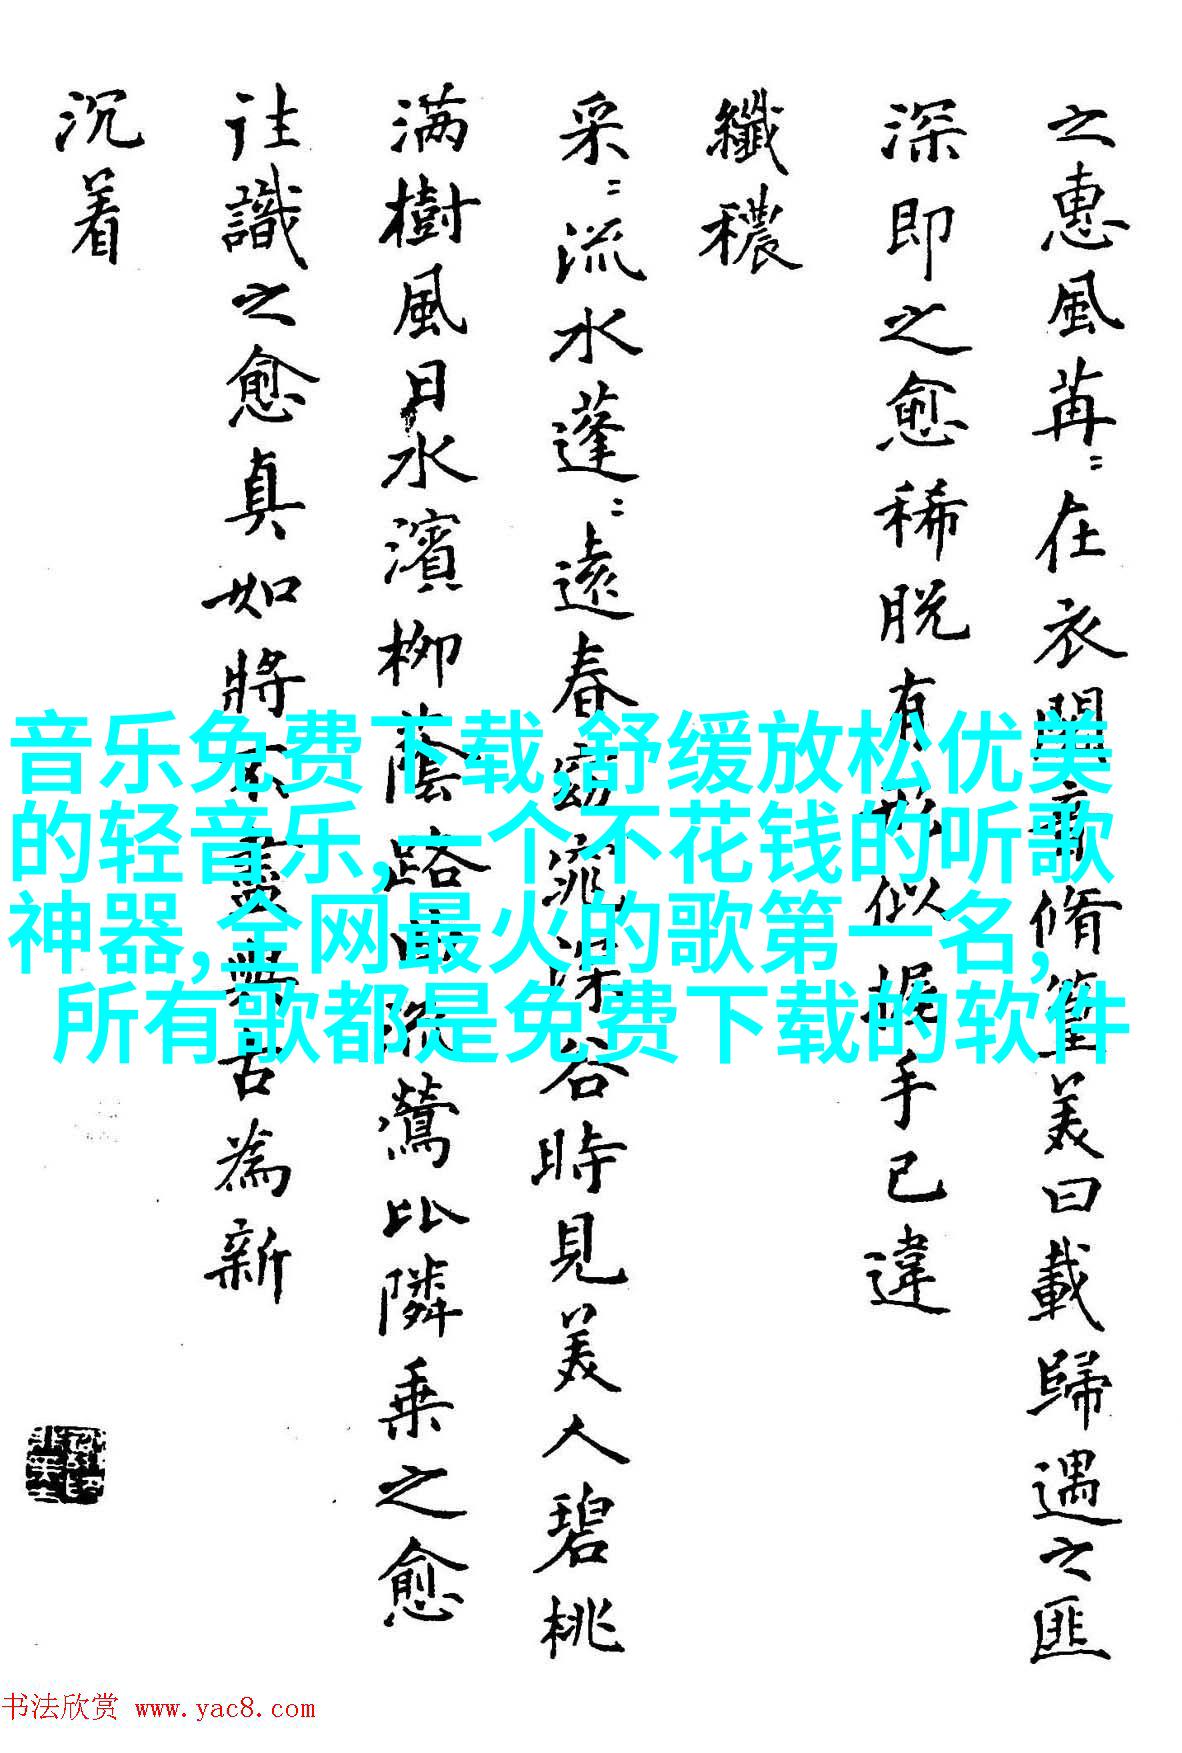 之惠風苒〻在衣閱音脩篁美曰載歸遇之匪
深即之愈稀脱有形似握手已違
纖穠
采〻流水蓬〻遠春窈窕深谷時見美人碧桃
满樹風日水濱柳蔭路曲流鶯比隣乗之愈
往識之愈真如將不盡與古為新
沉着
音乐免费下载,舒缓放松优美
的轻音乐,一个不花钱的听歌
神器,全网最火的歌第一名,
所有歌都是免费下载的软件
书法欣赏 www.yac8.com